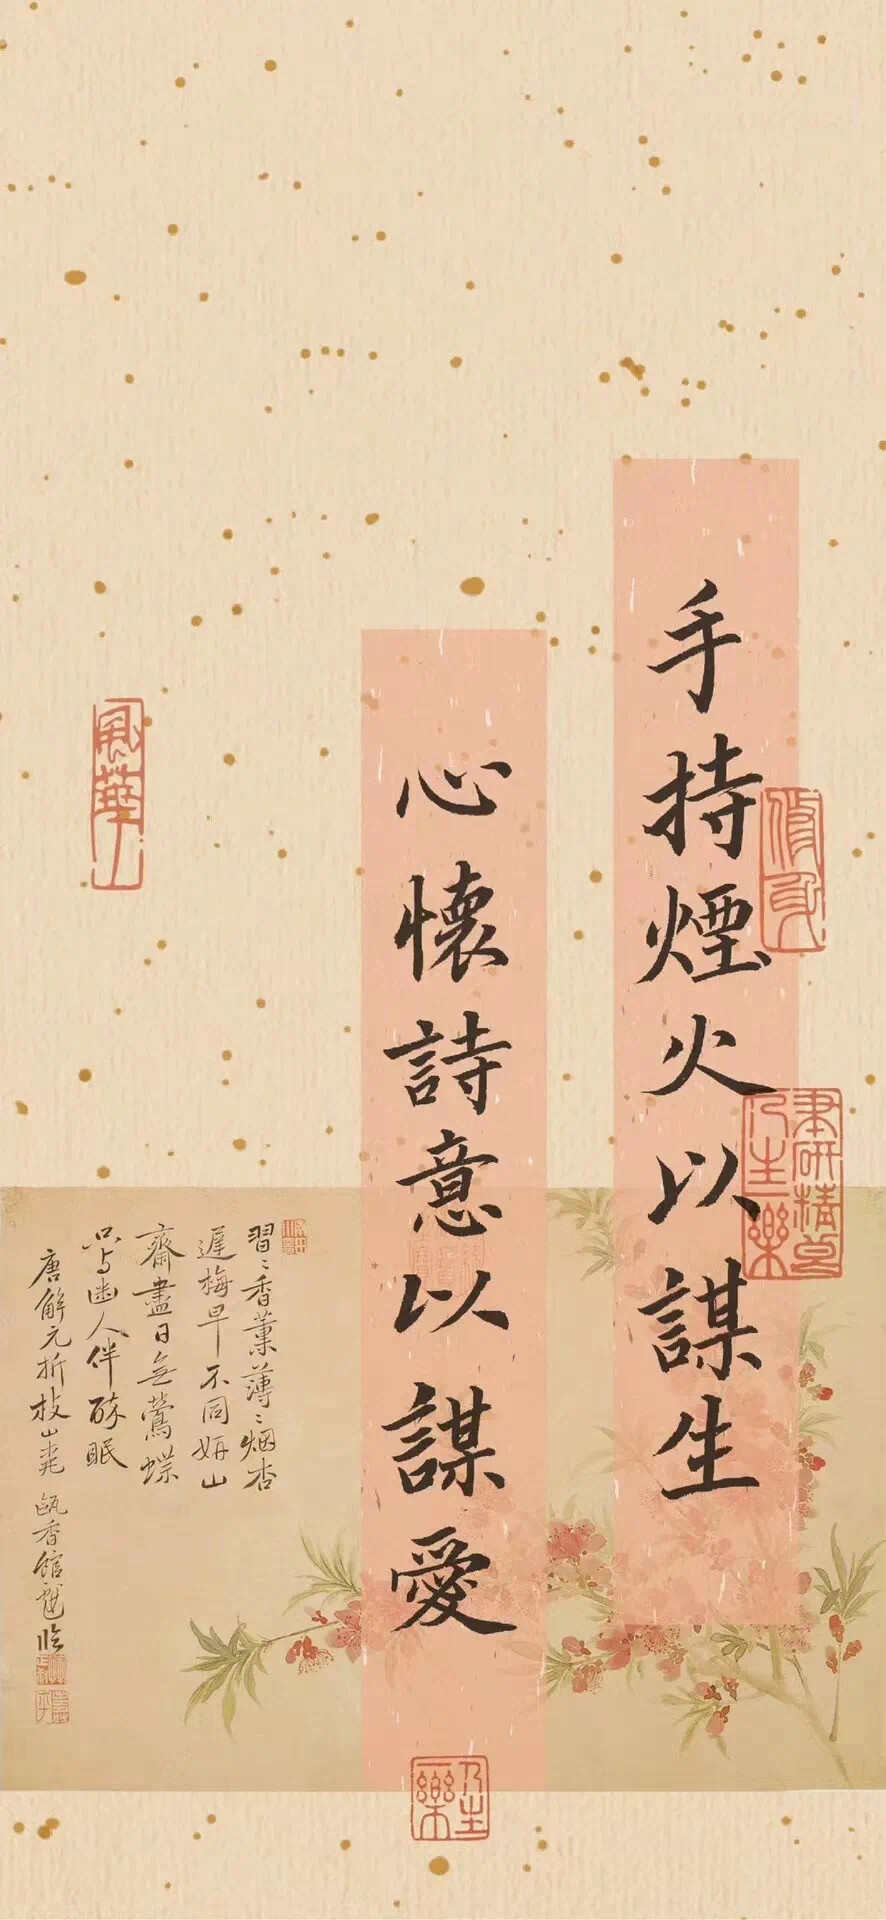 手持煙火以謀生
心懷詩意以謀愛
習〻香薰薄〻烟杏
遲梅早不同妍山
齋盡日無鶯蝶
只与幽人伴醉眠
唐解元折枝山桃
甌香館 臨
風華
乃生樂
乃生樂